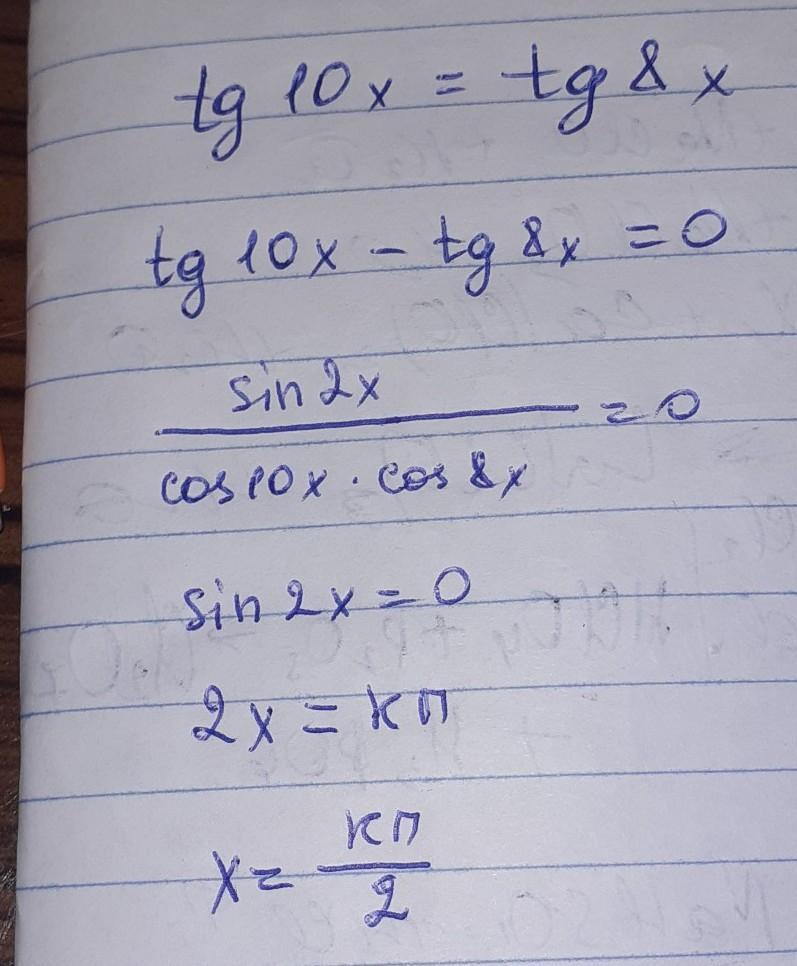 tg 10x = tg 8x
tg 10x - tg 8x = 0
sin 2x
= 0
cos 10x · cos 8x
sin 2x = 0
2x = кп
кп
x =
2